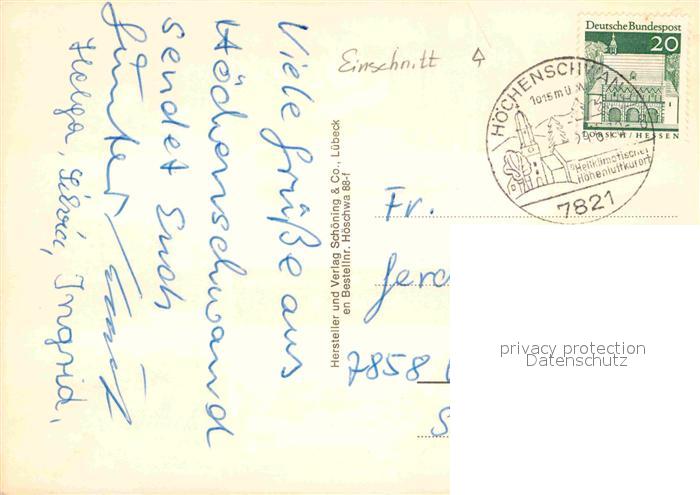 Viele Grüße aus
Höchenschwand
sendet Euch
Günter
Helga, Silvia, Ingrid,
Einschnitt
Hersteller und Verlag Schöning & Co., Lübeck
en Bestellnr. Höschwa 88-f
Deutsche Bundespost
20
LORSCH / HESSEN
HÖCHENSCHWAND
1015 m ü. M.
Heilklimatischer
Höhenluftkurort
7821
Fr.
Gerd
7858
S
privacy protection
Datenschutz